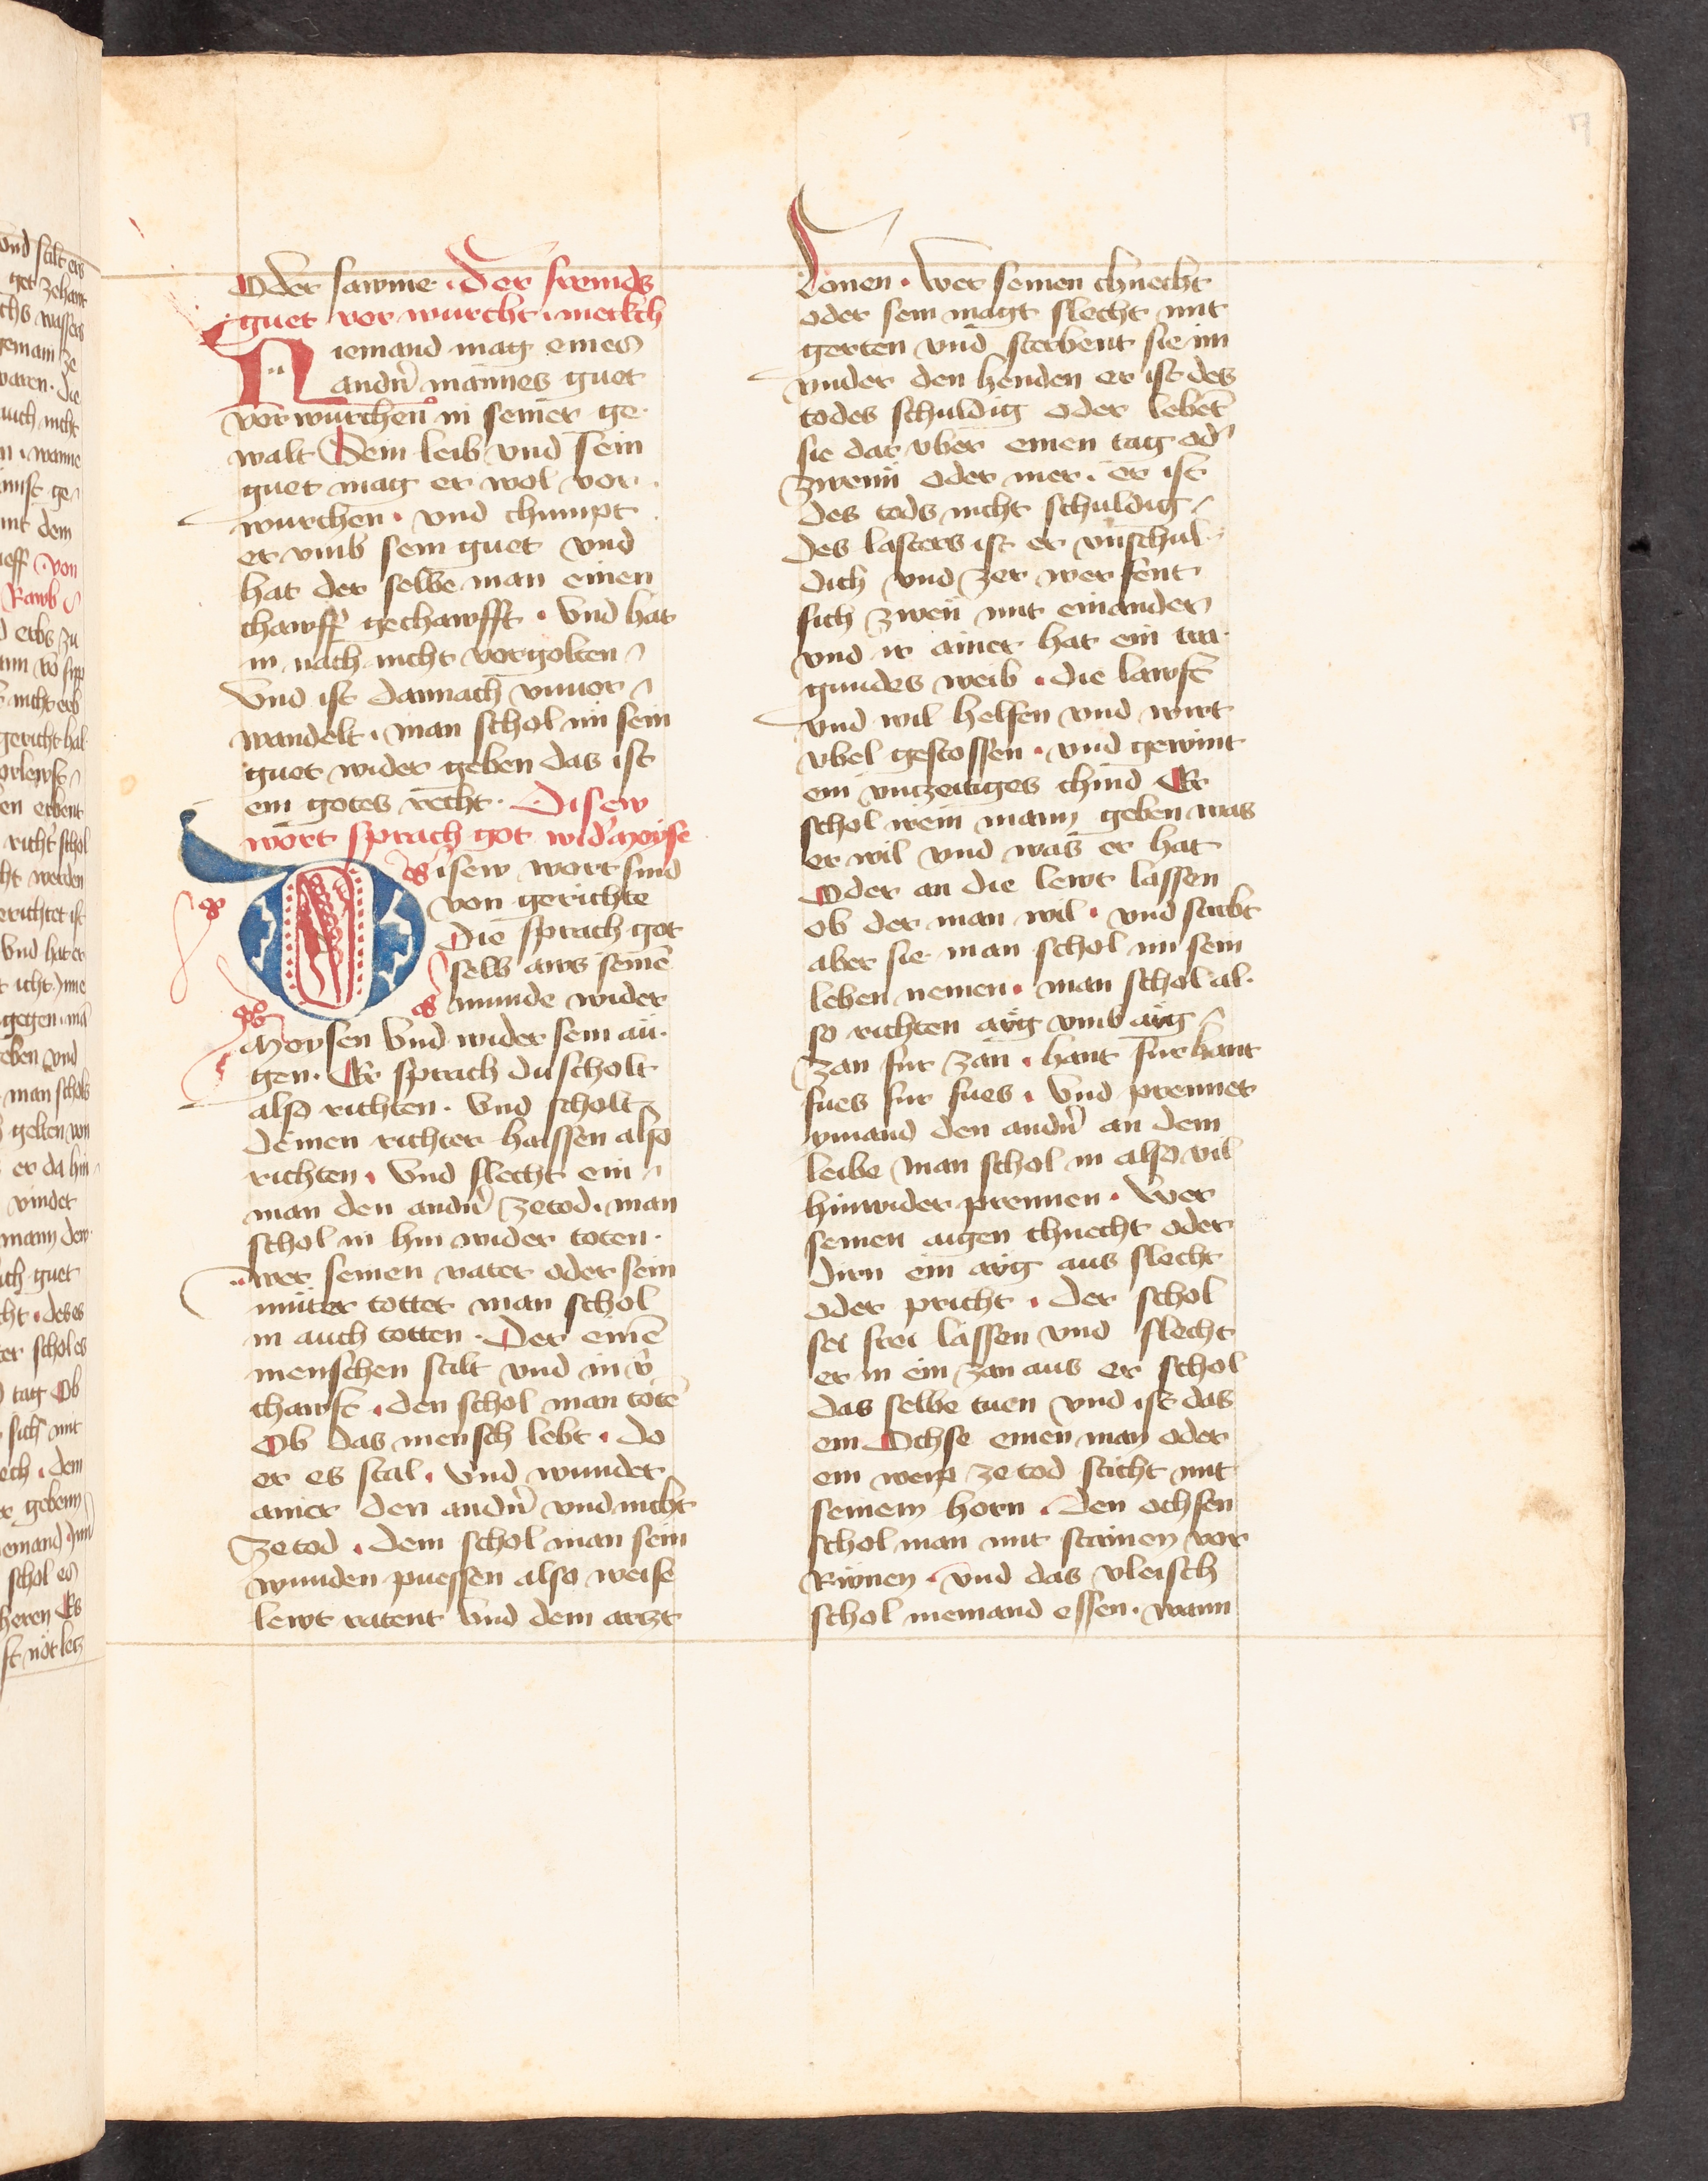 Oder sawme · Der fremds
guet vor wurcht · merkch
Niemand mag eines
andn̄ mannes guet
vorwurchen in seiner ge·
walt Sein leib vnd sein
guet mag er wol vor·
wurchen · vnd chumpt
er vmb sein guet vnd
hat der selbe man einen
chawff gechawfft · Vnd hat
in nach nicht vorgolten
Vnd ist dannach vnuor
wandelt · man schol im sein
guet wider geben das ist
ein gotes recht · Disew
wort sprach got wid' moyse
Disew wort sind
von gerichte
Die sprach got
selb aws seinē
munde wider
Moysen Vnd wider sein aü·
gen · Er sprach du scholt
also richten · Vnd scholt
deinen richter haissen also
richten · Vnd slecht ein
man den andn̄ zetod · man
schol in hin wider toten ·
wer seinen vater oder sein
müter tottet man schol
in auch totten · Der einē
menschen stilt vnd in v̄
chawft · den schol man totē
Ob das mensch lebt · do
er es stal · Vnd wundet
ainer den andn̄ vnd nicht
zetod · dem schol man sein
wunden puessen also weise
lewt ratent Vnd dem arzt
Lonen · Wer seinen chnecht
oder sein magt slecht mit
gerten vnd sterbent sie im
vnder den henden er ist des
todes schuldig oder lebet
sie dar vber einen tag od'
zwenn oder mer · er ist
des tods nicht schuldig
des lasters ist er vnschul·
dich vnd zer wer fent
sich zwen mit einander
vnd ir ainer hat ein tra·
gundes weib · die lawft
vnd wil helfen vnd wirt
vbel gestossen · vnd gewint
ein vnzeitiges chind Er
schol irem mann geben was
er wil vnd was er hat
Oder an die lewt lassen
ob der man wil · vnd stirbt
aber sie man schol im sein
leben nemen · man schol al·
so richten awg vmb awg
zan fur zan · hant fur hant
fues fur fues · Vnd prennet
ymand den andn̄ an dem
leibe man schol in also vil
hinwider prennen · Wer
seinen aigen chnecht oder
dirn ein awg aus slecht
oder pricht · der schol
sei frei lassen vnd slecht
er in ein zan aus er schol
das selbe tuen vnd ist das
ein Ochse einen man oder
ein weip ze tod sticht mit
seinem horn · Den ochsen
schol man mit stainen vor
Rivnen · vnd das vleisch
schol niemand essen · wann